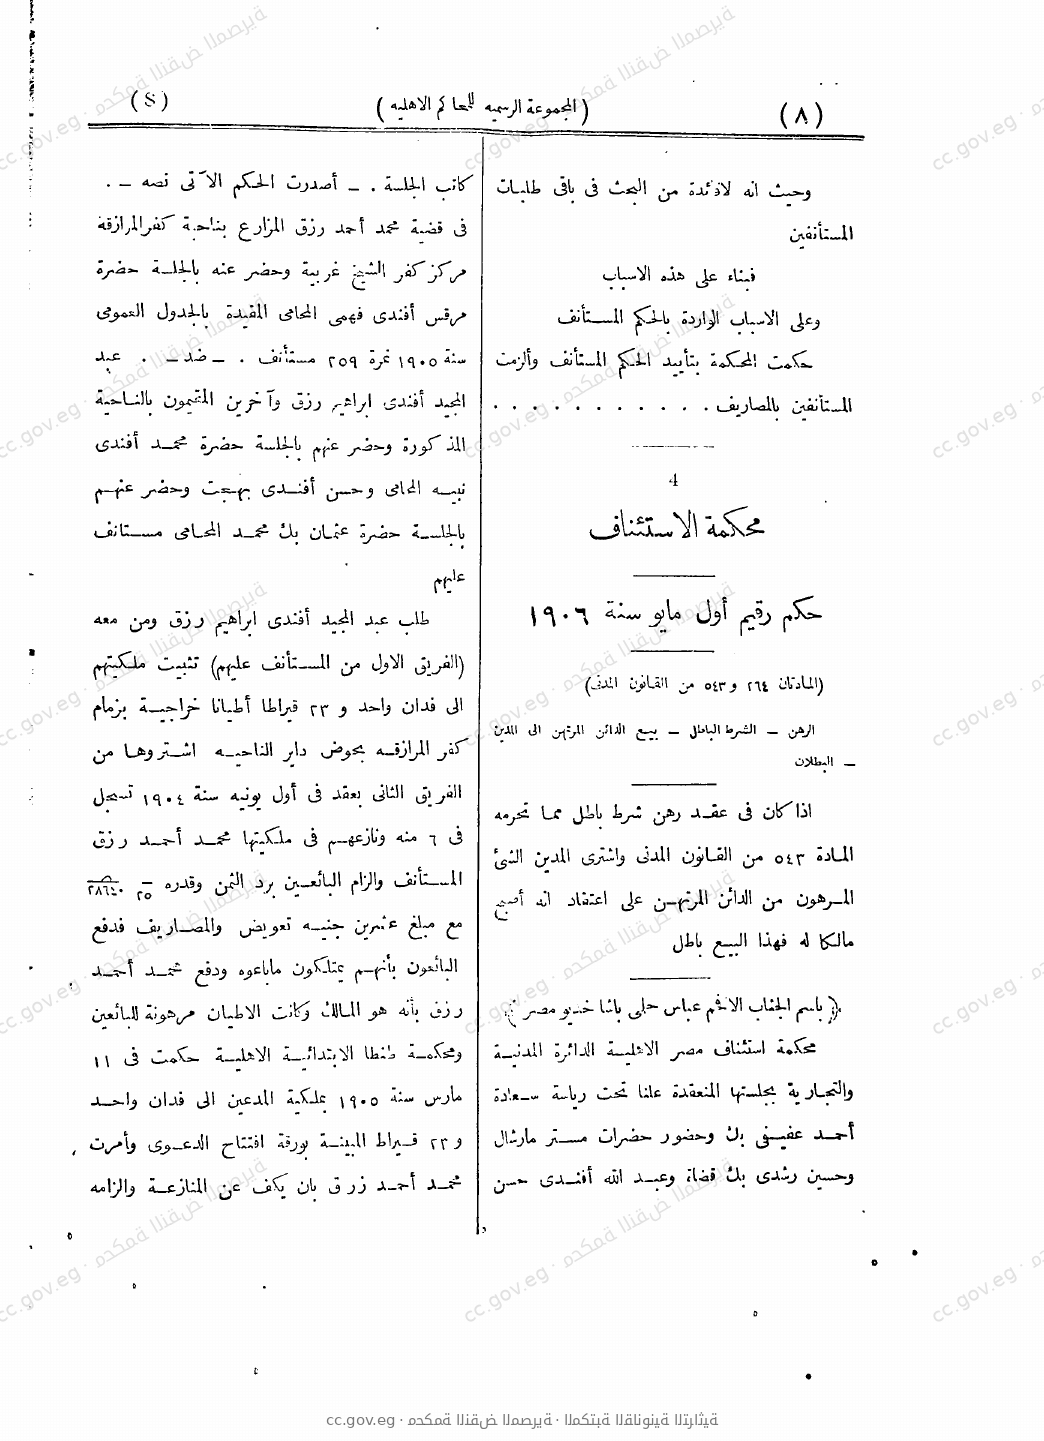 (٨)
(المجموعة الرسميه للمحاكم الاهليه)
(8)
وحيث انه لافائدة من البحث فى باقى طلبات
المستأنفين
فبناء على هذه الاسباب
وعلى الاسباب الواردة بالحكم المستأنف
حكمت المحكمة بتأييد الحكم المستأنف وألزمت
المستأنفين بالمصاريف . . . . . . . . . . .
4
محكمة الاستئناف
حكم رقيم أول مايو سنة ١٩٠٦
(المادتان ٢٦٤ و٥٤٣ من القانون المدنى)
الرهن – الشرط الباطل – بيع الدائن المرتهن الى المدين
– البطلان
اذا كان فى عقد رهن شرط باطل مما تحرمه
المادة ٥٤٣ من القانون المدنى واشترى المدين الشئ
المرهون من الدائن المرتهن على اعتقاد انه أصبح
مالكا له فهذا البيع باطل
(باسم الجناب الافخم عباس حلمى باشا خديو مصر)
محكمة استئناف مصر الاهلية الدائرة المدنية
والتجارية بجلستها المنعقدة علنا تحت رياسة سعادة
أحمد عفيفى بك وحضور حضرات مستر مارشال
وحسين رشدى بك قضاة وعبد الله أفندى حسن
كاتب الجلسة . – أصدرت الحكم الآتى نصه – .
فى قضية محمد أحمد رزق المزارع بناحية كفر المرازقة
مركز كفر الشيخ غربية وحضر عنه بالجلسة حضرة
مرقس أفندى فهمى المحامى المقيدة بالجدول العمومى
سنة ١٩٠٥ نمرة ٢٥٩ مستأنف . – ضد – . عبد
المجيد أفندى ابراهيم رزق وآخرين المقيمون بالناحية
المذكورة وحضر عنهم بالجلسة حضرة محمد أفندى
نبيه المحامى وحسن أفندى بهجت وحضر عنهم
بالجلسة حضرة عثمان بك محمد المحامى مستانف
عليهم
طلب عبد المجيد أفندى ابراهيم رزق ومن معه
(الفريق الاول من المستأنف عليهم) تثبيت ملكيتهم
الى فدان واحد و ٢٣ قيراطا أطيانا خراجية بزمام
كفر المرازقه بحوض داير الناحيه اشتروها من
الفريق الثانى بعقد فى أول يونيه سنة ١٩٠٤ تسجل
فى ٦ منه ونازعهم فى ملكيتها محمد أحمد رزق
المستأنف والزام البائعين برد الثمن وقدره
مع مبلغ عشرين جنيه تعويض والمصاريف فدفع
البائعون بأنهم يمتلكون ماباعوه ودفع محمد أحمد
رزق بأنه هو المالك وكانت الاطيان مرهونة للبائعين
ومحكمة طنطا الابتدائية الاهلية حكمت فى ١١
مارس سنة ١٩٠٥ بملكية المدعين الى فدان واحد
و ٢٣ قيراط المبينة بورقة افتتاح الدعوى وأمرت
محمد أحمد زرق بان يكف عن المنازعة والزامه
cc.gov.eg · محكمة النقض المصرية · المكتبة القانونية التراثية